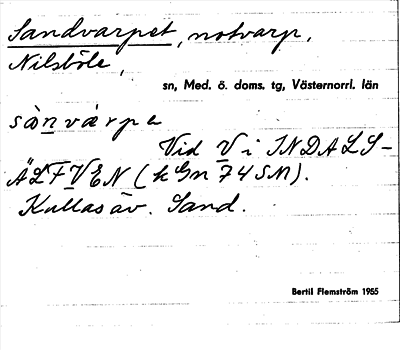 Sandvarpet, notvarp,
Nilsböle,
sn, Med. ö. doms. tg, Västernorrl. län
sànvárpe
Vid V i INDALS-
ÄLFVEN (kGn 74 SM).
Kallas äv. Sand.
Bertil Flemström 1955